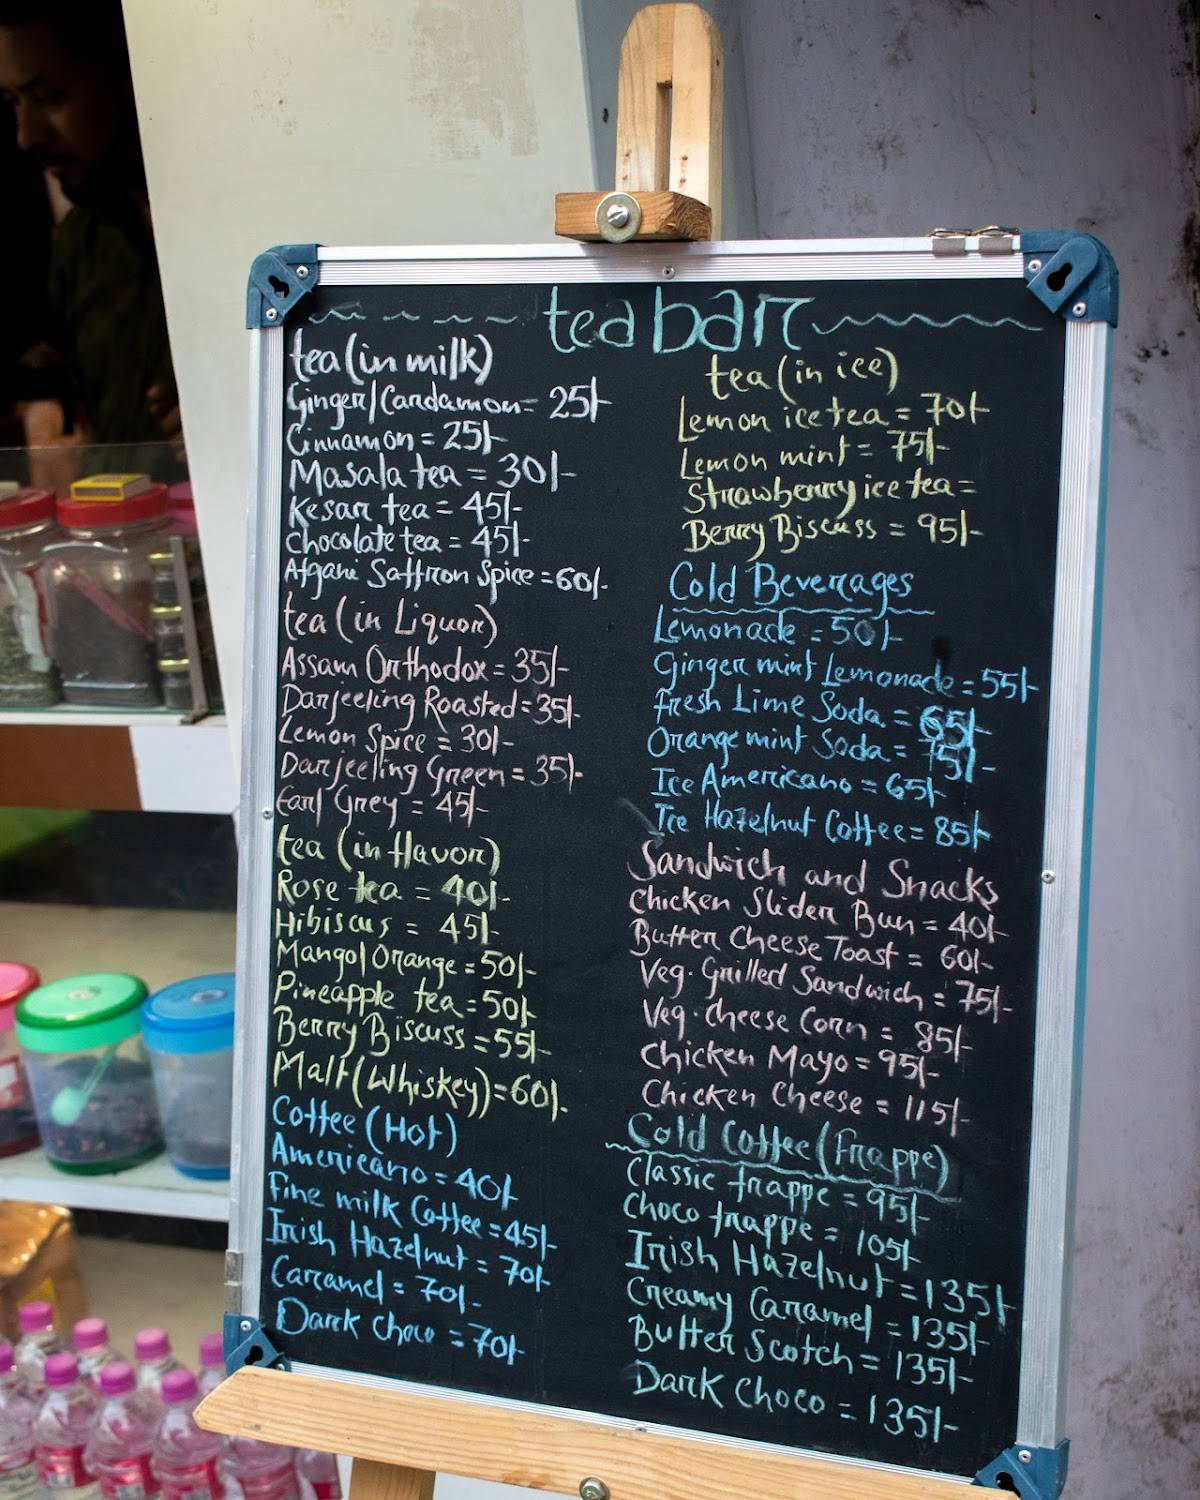 tea bar
tea (in milk)
Ginger/Cardamon = 25/-
Cinnamon = 25/-
Masala tea = 30/-
Kesar tea = 45/-
Chocolate tea = 45/-
Afgani Saffron Spice = 60/-
tea (in Liquor)
Assam Orthodox = 35/-
Darjeeling Roasted = 35/-
Lemon Spice = 30/-
Darjeeling Green = 35/-
Earl Grey = 45/-
tea (in flavor)
Rose tea = 40/-
Hibiscus = 45/-
Mango/Orange = 50/-
Pineapple tea = 50/-
Berry Biscuss = 55/-
Malt (Whiskey) = 60/-
Coffee (Hot)
Americano = 40/-
Fine milk Coffee = 45/-
Irish Hazelnut = 70/-
Caramel = 70/-
Dark choco = 70/-
tea (in ice)
Lemon ice tea = 70/-
Lemon mint = 75/-
Strawberry ice tea =
Berry Biscuss = 95/-
Cold Beverages
Lemonade = 50/-
Ginger mint Lemonade = 55/-
Fresh Lime Soda = 65/-
Orange mint Soda = 75/-
Ice Americano = 65/-
Ice Hazelnut Coffee = 85/-
Sandwich and Snacks
Chicken Slider Bun = 40/-
Butter Cheese Toast = 60/-
Veg. Grilled Sandwich = 75/-
Veg. Cheese Corn = 85/-
Chicken Mayo = 95/-
Chicken Cheese = 115/-
Cold Coffee (Frappe)
Classic frappe = 95/-
Choco frappe = 105/-
Irish Hazelnut = 135/-
Creamy Caramel = 135/-
Butter Scotch = 135/-
Dark Choco = 135/-